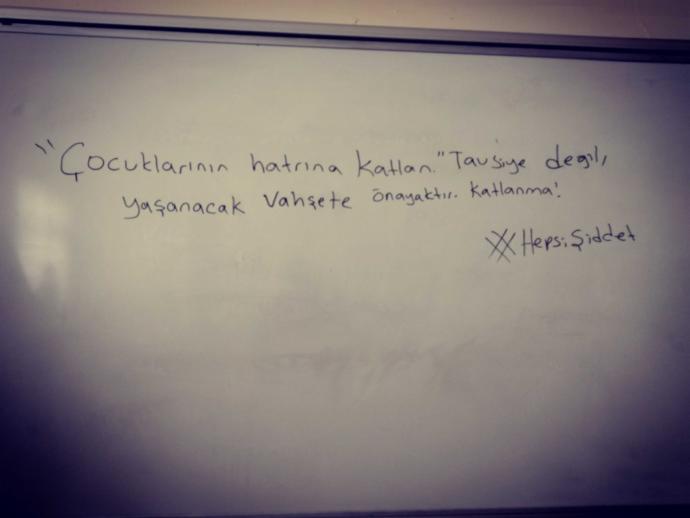 "Çocuklarının hatrına katlan." Tavsiye değil,
yaşanacak vahşete önayaktır. Katlanma!
#HepsiŞiddet